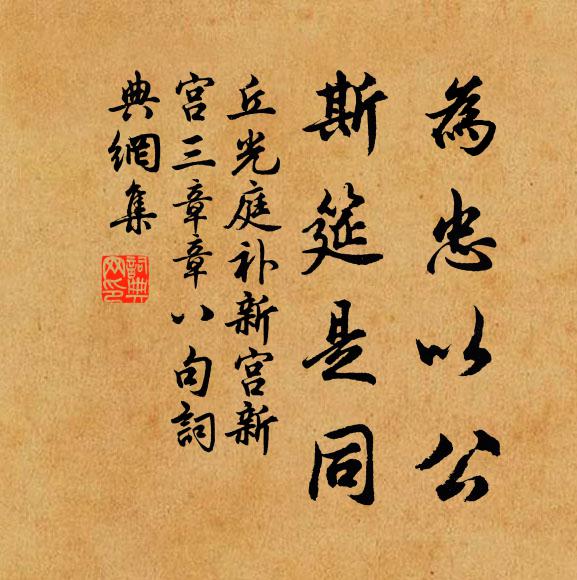 為忠以公
斯筵是同
丘光庭补新宫新
宫三章章八句詞
典網集
詞典
网印